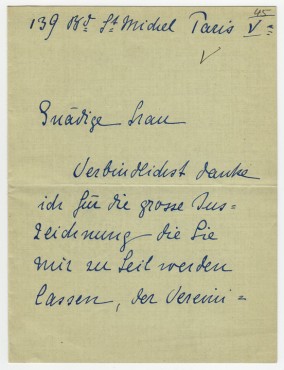 45
139 Bd St Michel Paris Ve
V
Gnädige Frau
Verbindlichst danke
ich für die grosse Aus=
zeichnung die Sie
mir zu Teil werden
lassen, der Vereini=